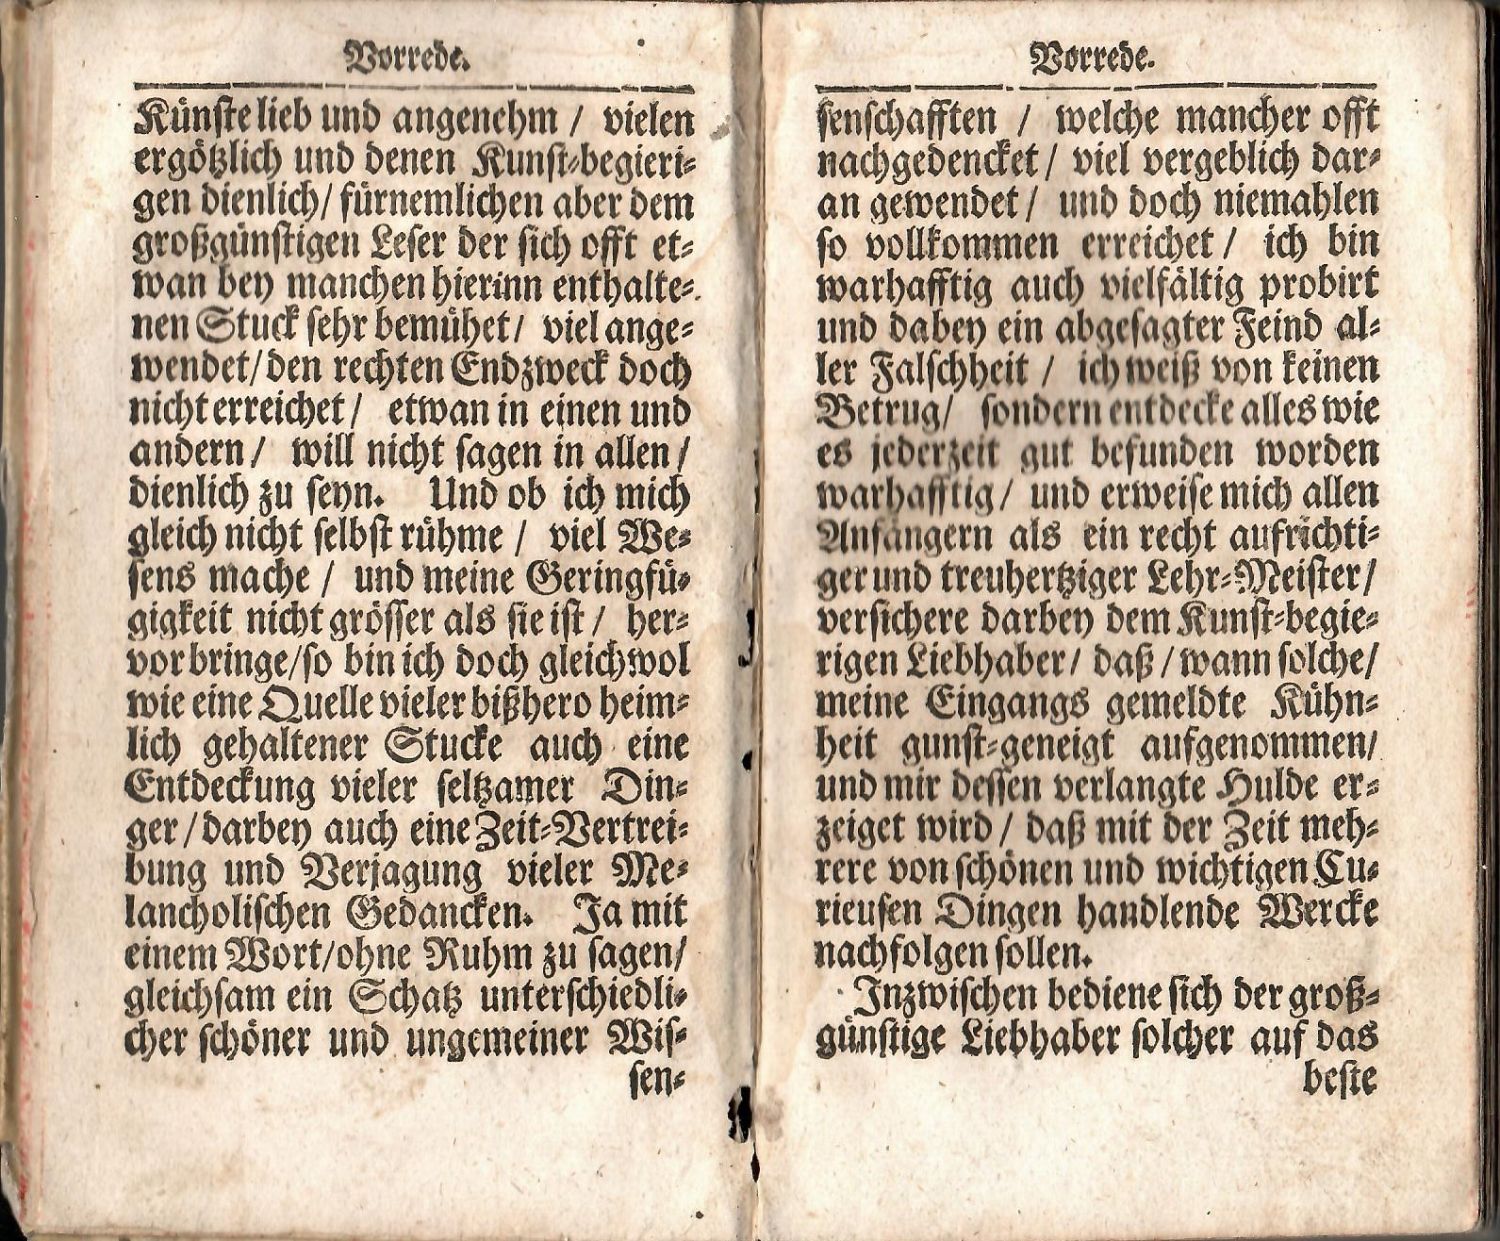 Vorrede.
Künste lieb und angenehm / vielen
ergötzlich und denen Kunst-begieri-
gen dienlich / fürnemlichen aber dem
großgünstigen Leser der sich offt et-
wan bey manchen hierinn enthalte-
nen Stuck sehr bemühet / viel ange-
wendet / den rechten Endzweck doch
nicht erreichet / etwan in einen und
andern / will nicht sagen in allen /
dienlich zu seyn. Und ob ich mich
gleich nicht selbst rühme / viel We-
sens mache / und meine Geringfü-
gigkeit nicht grösser als sie ist / her-
vor bringe / so bin ich doch gleichwol
wie eine Quelle vieler bißhero heim-
lich gehaltener Stucke auch eine
Entdeckung vieler seltzamer Din-
ger / darbey auch eine Zeit-Vertrei-
bung und Verjagung vieler Me-
lancholischen Gedancken. Ja mit
einem Wort / ohne Ruhm zu sagen /
gleichsam ein Schatz unterschiedli-
cher schöner und ungemeiner Wis-
sen-
Vorrede.
senschafften / welche mancher offt
nachgedencket / viel vergeblich dar-
an gewendet / und doch niemahlen
so vollkommen erreichet / ich bin
warhafftig auch vielfältig probirt
und dabey ein abgesagter Feind al-
ler Falschheit / ich weiß von keinen
Betrug / sondern entdecke alles wie
es jederzeit gut befunden worden
warhafftig / und erweise mich allen
Anfängern als ein recht aufrichti-
ger und treuhertziger Lehr-Meister /
versichere darbey dem Kunst-begie-
rigen Liebhaber / daß / wann solche /
meine Eingangs gemeldte Kühn-
heit gunst-geneigt aufgenommen /
und mir dessen verlangte Hulde er-
zeiget wird / daß mit der Zeit meh-
rere von schönen und wichtigen Cu-
rieusen Dingen handlende Wercke
nachfolgen sollen.
Inzwischen bediene sich der groß-
günstige Liebhaber solcher auf das
beste